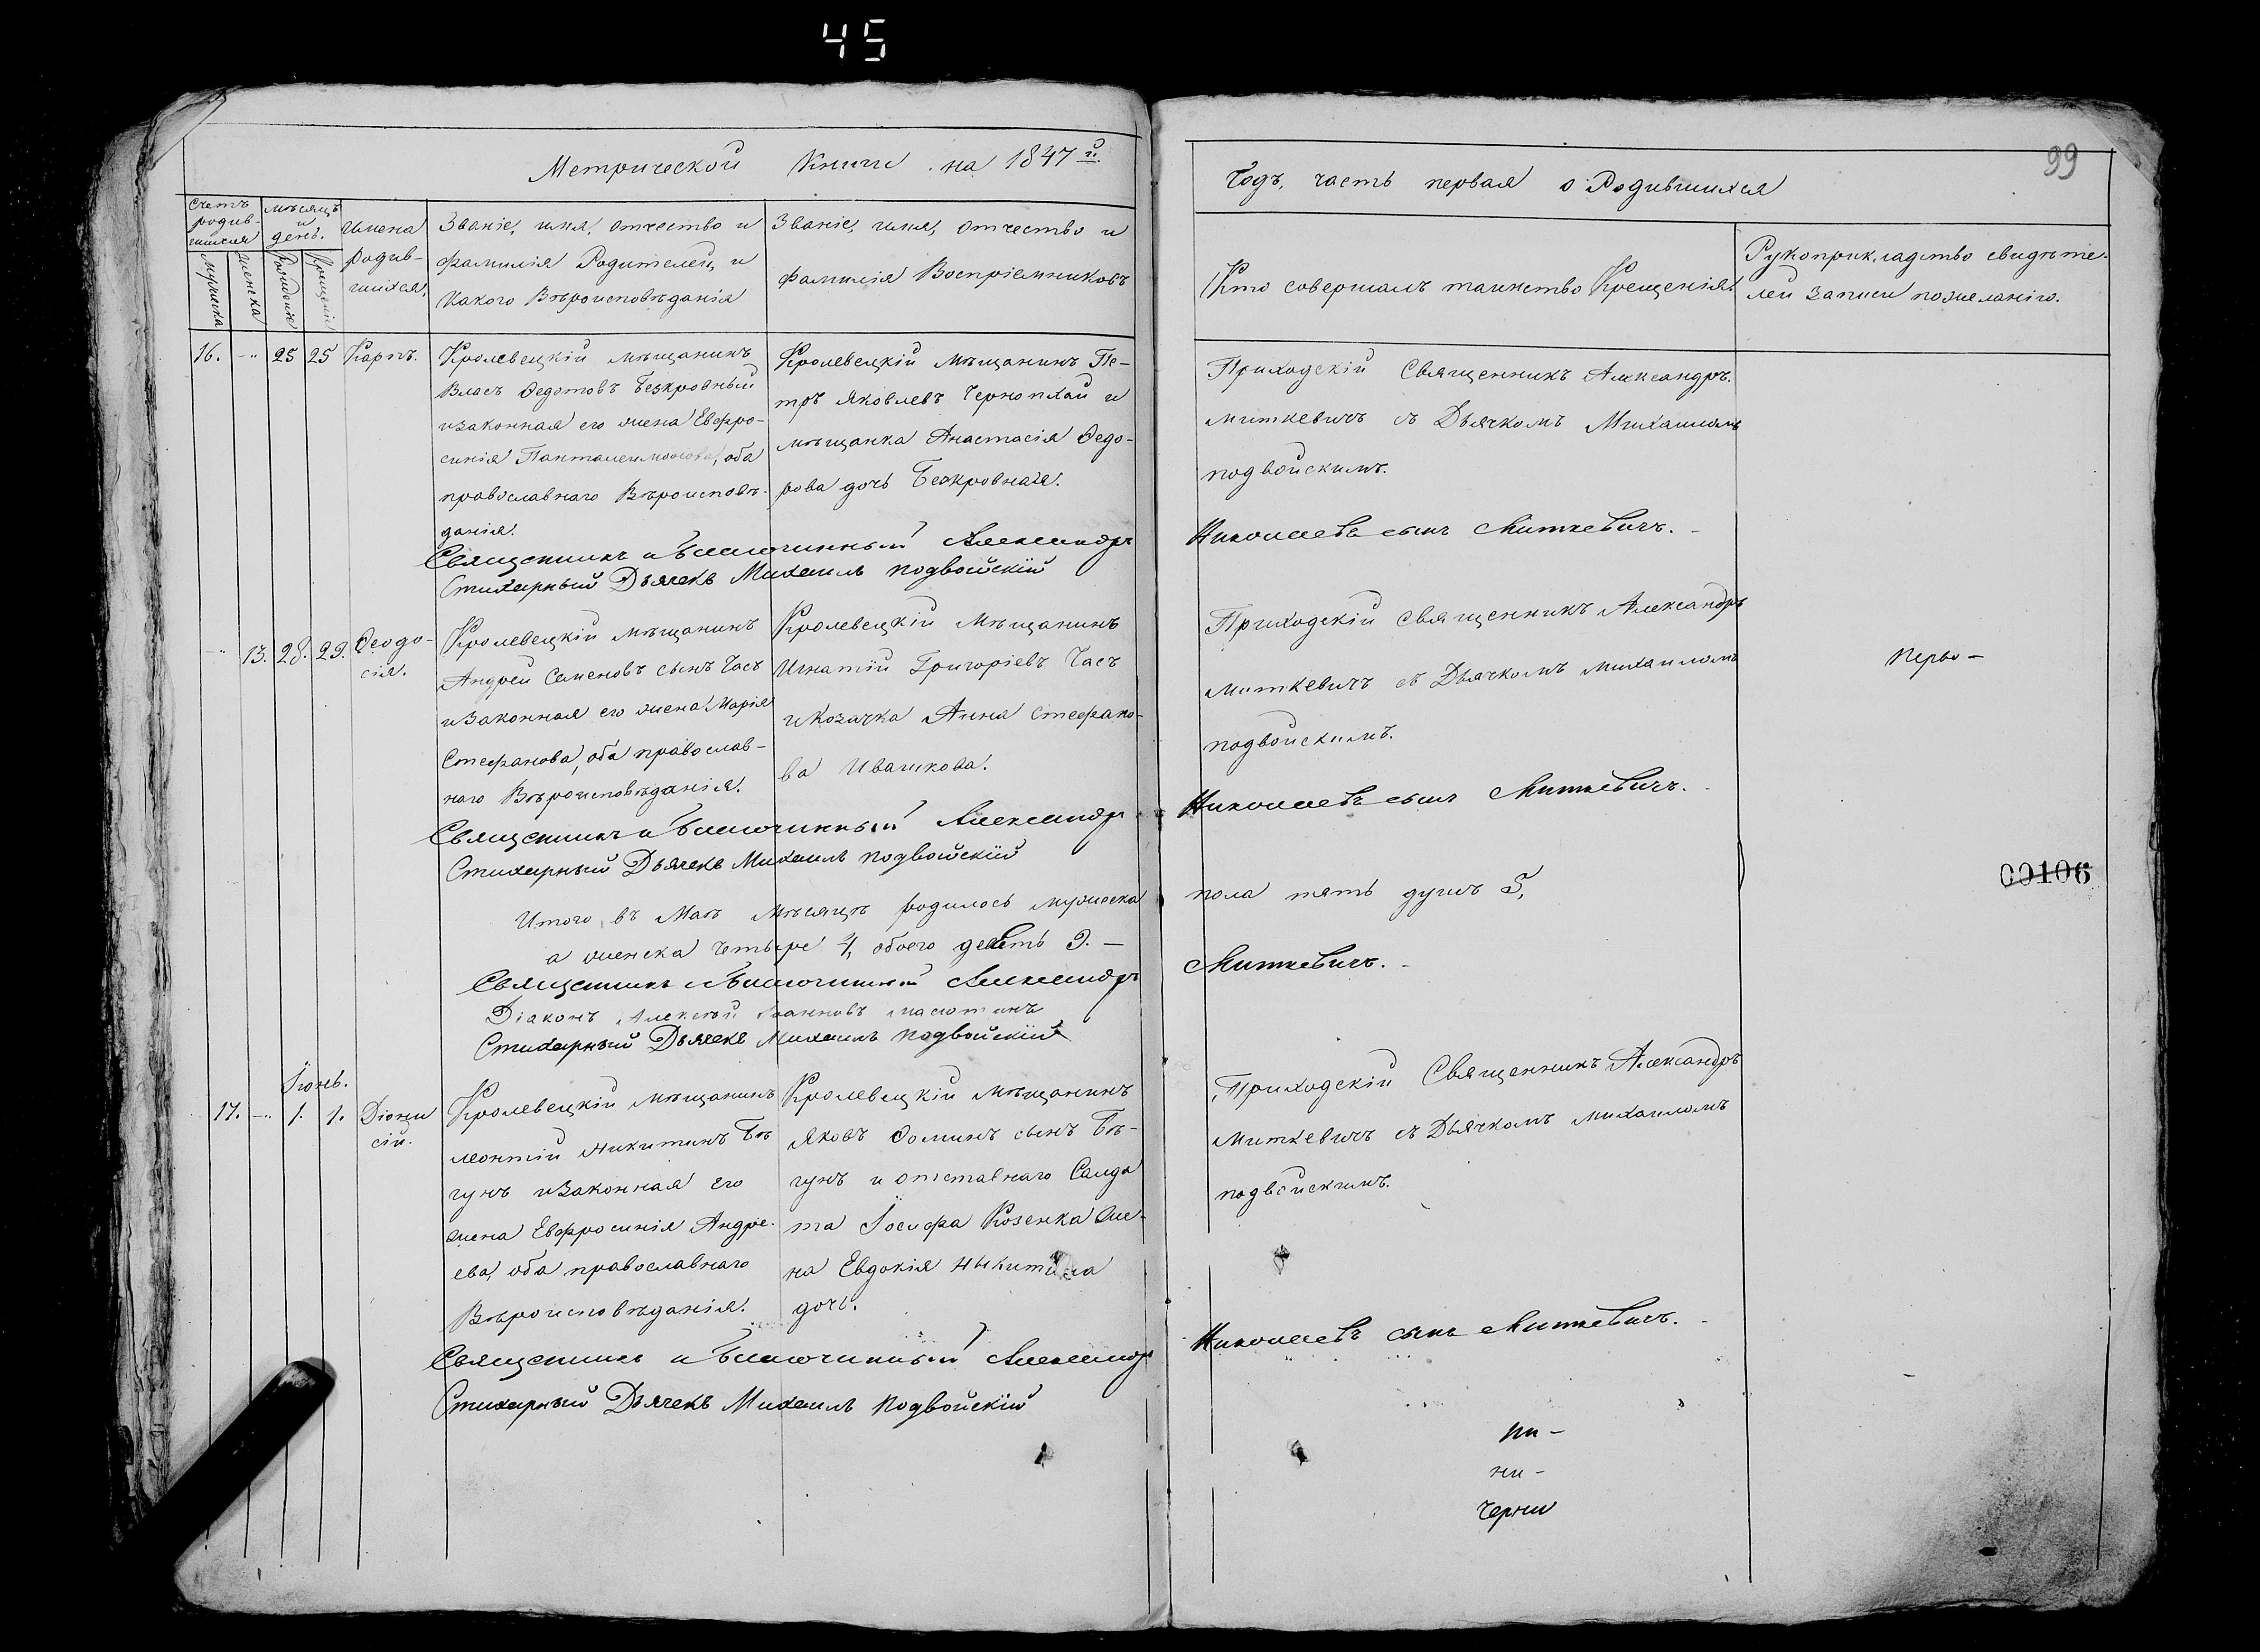 45
Метрической Книги на 1847 й.
Годъ, часть первая о Родившихся
99
Счетъ родив-шихся
мужска
женска
мѣсяцъ и день.
Рожденіе
Крещеніе
Имена родив-шихся,
Званіе, имя, отчество и
фамилія Родителей, и
какого Вѣроисповѣданія
Званіе, имя, отчество и
фамилія Воспріемниковъ
Кто совершалъ таинство Крещенія.
Рукоприкладство свидѣте-
лей записи по желанію.
16. -„ 25 25 Карпъ.
Кролевецкій мѣщанинъ
Власъ Ѳедотовъ Безкровный
и законная его жена Евфро-
синія Панталеимонова, оба
православнаго Вѣроисповѣ-
данія.
Кролевецкій Мѣщанинъ Пе-
тръ Яковлевъ Чернопхай и
мѣщанка Анастасія Ѳедо-
рова дочь Безкровная.
Приходскій Священникъ Александръ
Миткевичъ съ Дьячкомъ Михаиломъ
подвойскимъ.
Священникъ и Благочинный Александръ Николаевъ сынъ Миткевичъ.
Стихарный Дьячекъ Михаилъ Подвойскій
-„ 13. 28. 29. Ѳеодо-
сія.
Кролевецкій мѣщанинъ
Андрей Семеновъ сынъ Часъ
и законная его жена Марія
Стефанова, оба православ-
наго Вѣроисповѣданія.
Кролевецкій Мѣщанинъ
Игнатій Григоріевъ Часъ
и козачка Анна Стефано-
ва Ивашкова.
Приходскій Священникъ Александръ
Миткевичъ съ Дьячкомъ Михаиломъ
подвойскимъ.
перво-
Священникъ и Благочинный Александръ Николаевъ сынъ Миткевичъ.
Стихарный Дьячекъ Михаилъ Подвойскій
00106
Итого въ Маѣ мѣсяцѣ родилось мужеска пола пять душъ 5,
а женска четыре 4, обоего девять 9.-
Священникъ и Благочинный Александръ Миткевичъ.
Діаконъ Алексѣй Іоанновъ
Стихарный Дьячекъ Михаилъ Подвойскій
Іюнь.
17. -„ 1. 1. Діони
сій.
Кролевецкій мѣщанинъ
Леонтій Никитинъ Бѣ
гунъ и законная его
жена Евфросинія Андре-
ева, оба православнаго
Вѣроисповѣданія.
Кролевецкій Мѣщанинъ
Яковъ Ѳоминъ сынъ Бѣ-
гунъ и отставнаго Салда
та Іосифа Козенка же-
на Евдокія Никитина
дочь.
Приходскій Священникъ Александръ
Миткевичъ съ Дьячкомъ Михаиломъ
подвойскимъ.
Священникъ и Благочинный Александръ Николаевъ сынъ Миткевичъ.
Стихарный Дьячекъ Михаилъ Подвойскій
ни-